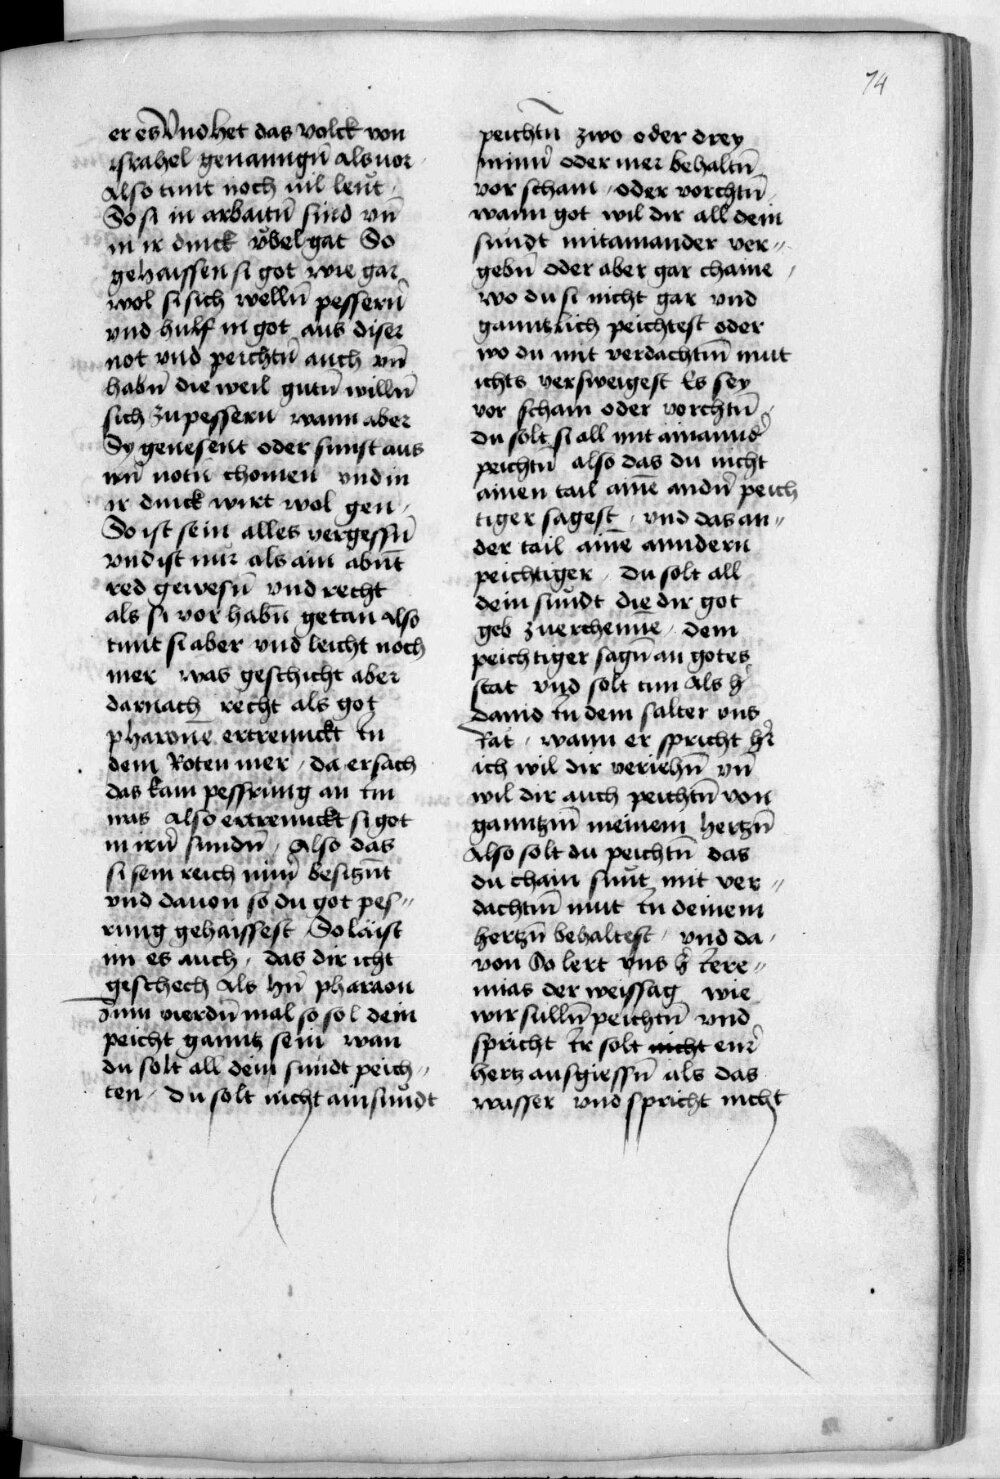 74
er es Vnd het das volck von
israhel genanngn̄ als vor
Also tunt noch vil leut
So si in arbaitn̄ sind vn̄
in ir dinck v̈bel gat So
gehaissen si got wie gar
wol si sich welln̄ pessern̄
vnd hulf in got aus diser
not vnd peichtn̄ auch vn̄
habn̄ die weil gutn̄ willn̄
sich zu pessern wann aber
Sy genesent oder sunst aus
irn̄ notn chomen vnd in
ir dinck wirt wol gen
So ist sein alles vergessn̄
vnd ist nur als ain abn̄t
red gewesn̄ vnd recht
als si vor habn̄ getan Also
tunt si aber vnd leicht noch
mer was geschicht aber
darnach recht als got
pharone ertrennckt In
dem Roten mer, da er sach
das kain pessrung an im
was Also ertrennckt si got
in irn̄ sundn̄, Also das
si sein reich nim̄ besiczn̄t
vnd dauon so du got pes„
rung gehaissest So laist
im es auch, das dir icht
geschech Als hn̄ pharaon
Zum vierdn̄ mal so sol dein
peicht ganntz sein wan
du solt all dein sundt peich„
ten, du solt nicht ain sundt
peichtn̄ zwo oder drey
minn̄ oder mer behaltn̄
vor scham, oder vorchtn̄
wann got wil dir all dein
sundt mitainander ver„
gebn̄ oder aber gar chaine,
wo du si nicht gar vnd
ganntzlich peichtest oder
wo du mit verdachtm̄ mut
ichts versweigest Es sey
vor scham oder vorchtn̄,
du solt si all mit ainannd̄
peichtn̄ also das du nicht
ainen tail aine andn̄ peich
tiger sagest, vnd das an„
der tail aine anndern
peichtiger, du solt all
dein sundt die dir got
geb zu erchenne, dem
peichtiger sagn̄ an gotes
stat vnd solt tun Als h̄
dauid In dem salter vns
Rat, wann er spricht hr̄
ich wil dir veriehn̄ vn̄
wil dir auch peichtn̄ von
ganntzm̄ meinem hertzn̄
Also solt du peichtn̄ das
du chain sunt mit ver„
dachtm̄ mut In deinem
hertzn̄ behaltest, vnd da,
von So lert vns h̄ Iere„
mias der weissag wie
wir sulln̄ peichtn̄ vnd
spricht Ir solt nicht eur̄
hertz ausgiessn̄ als das
wasser vnd spricht nicht